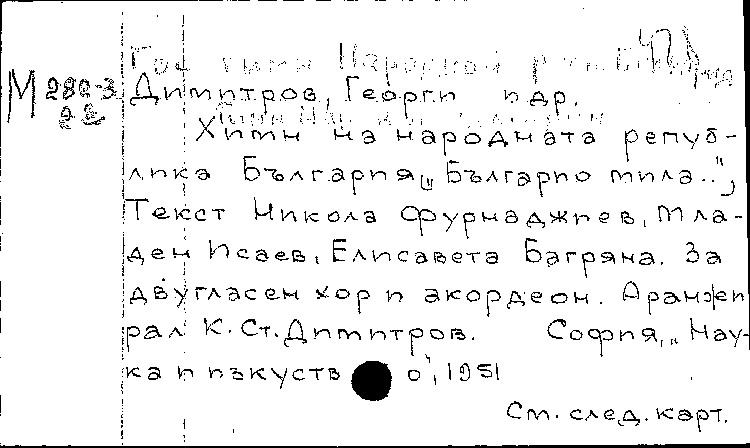 М 282-3
22
Димитров, Георги и др.
Химн на народната репуб-
лика България („Българио мила..“),
Текст Никола Фурнаджиев, Мла-
ден Исаев, Елисавета Багряна. За
двугласен хор и акордеон. Аранжи
рал К. Ст. Димитров. София, „Нау-
ка и изкуство“, 1951
См. след. карт.